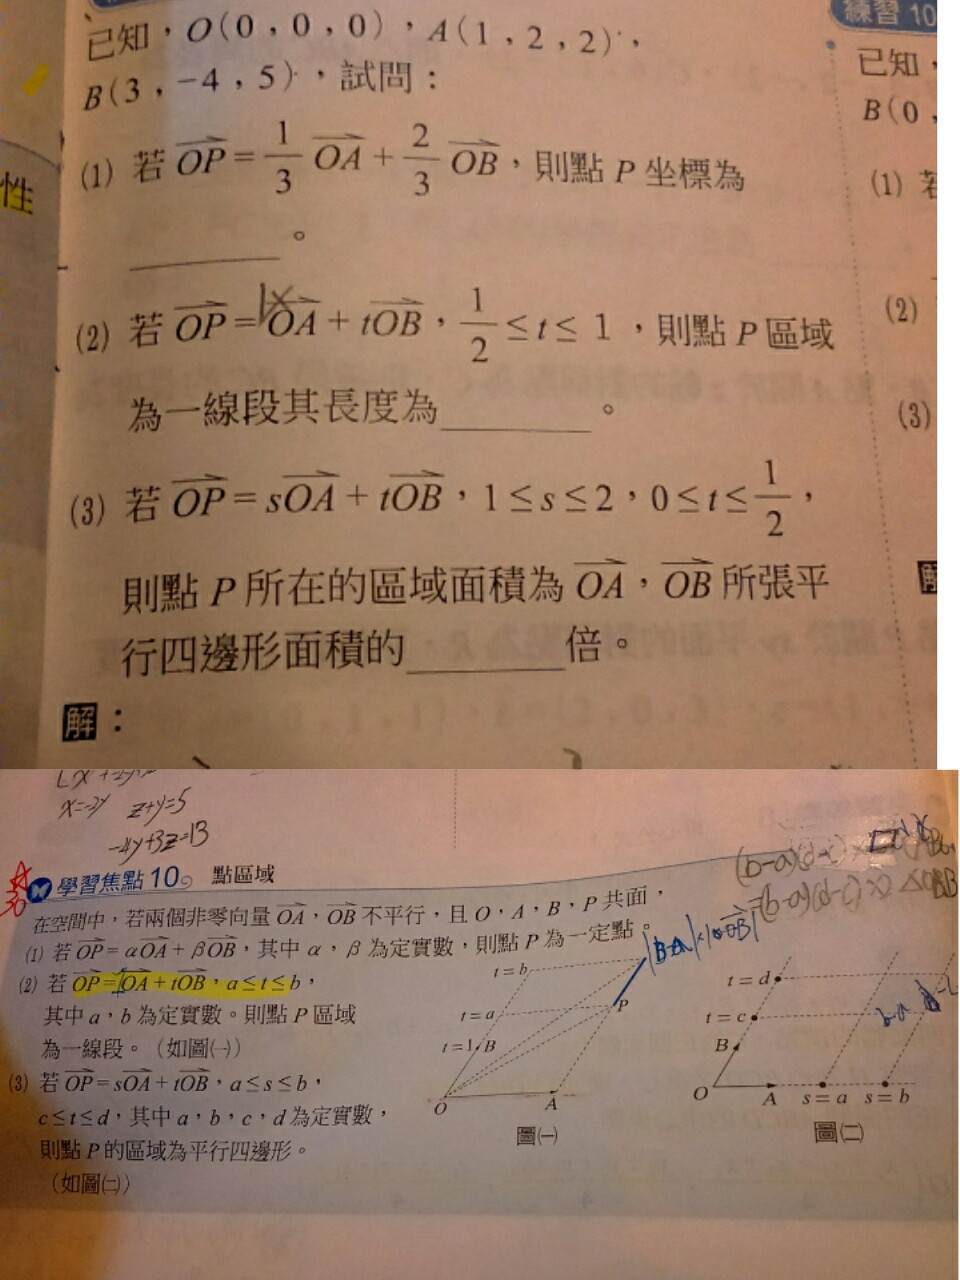 練習 10
已知，O(0，0，0)，A(1，2，2)，
B(3，-4，5)，試問：
(1) 若 OP = 1/3 OA + 2/3 OB，則點 P 坐標為
______。
(2) 若 OP = 1x OA + tOB，1/2 ≤ t ≤ 1，則點 P 區域
為一線段其長度為______。
(3) 若 OP = sOA + tOB，1 ≤ s ≤ 2，0 ≤ t ≤ 1/2，
則點 P 所在的區域面積為 OA，OB 所張平
行四邊形面積的______倍。
解：
性
已知，
B(0，
(1) 若
(2)
(3)
解
x=-2y z+y=5
-4y+3z=13
學習焦點 10 點區域
在空間中，若兩個非零向量 OA，OB 不平行，且 O，A，B，P 共面，
(1) 若 OP = αOA + βOB，其中 α，β 為定實數，則點 P 為一定點。
(2) 若 OP = 1OA + tOB，a ≤ t ≤ b，
其中 a，b 為定實數。則點 P 區域
為一線段。（如圖㈠）
(3) 若 OP = sOA + tOB，a ≤ s ≤ b，
c ≤ t ≤ d，其中 a，b，c，d 為定實數，
則點 P 的區域為平行四邊形。
（如圖㈡）
t=b
t=a
t=1 B
P
O
A
圖㈠
t=d
t=c
B
O
A
s=a
s=b
圖㈡
(b-a)(d-c)×
=(b-a)(d-c)×2
b-a